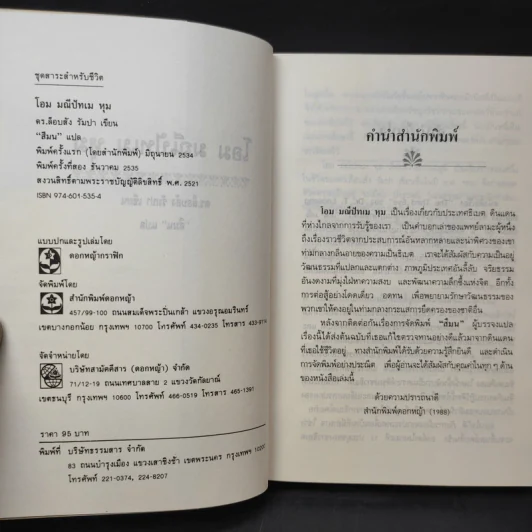 ชุดสาระสำหรับชีวิต
โอม มณีปัทเม หุม
ดร.ล็อบสัง รัมปา เขียน
"สิมน" แปล
พิมพ์ครั้งแรก (โดยสำนักพิมพ์) มิถุนายน 2534
พิมพ์ครั้งที่สอง ธันวาคม 2535
สงวนสิทธิ์ตามพระราชบัญญัติลิขสิทธิ์ พ.ศ. 2521
ISBN 974-601-535-4
แบบปกและรูปเล่มโดย
ดอกหญ้ากราฟิก
จัดพิมพ์โดย
สำนักพิมพ์ดอกหญ้า
457/99-100 ถนนสมเด็จพระปิ่นเกล้า แขวงอรุณอมรินทร์
เขตบางกอกน้อย กรุงเทพฯ 10700 โทรศัพท์ 434-0235 โทรสาร
จัดจำหน่ายโดย
บริษัทสามัคคีสาร (ดอกหญ้า) จำกัด
71/12-19 ถนนเทศบาลสาย 2 แขวงวัดกัลยาณ์
เขตธนบุรี กรุงเทพฯ 10600 โทรศัพท์ โทรสาร 465-1391
ราคา 95 บาท
พิมพ์ที่ บริษัทธรรมสาร จำกัด
83 ถนนบำรุงเมือง แขวงเสาชิงช้า เขตพระนคร กรุงเทพฯ
โทรศัพท์ 221-0374, 224-8207
คำนำสำนักพิมพ์
โอม มณีปัทเม หุม เป็นเรื่องเกี่ยวกับประเทศธิเบต ดินแดน
ที่ห่างไกลจากการรับรู้ของเรา เป็นคำบอกเล่าของแพทย์ลามะผู้หนึ่ง
ถึงเรื่องราวชีวิตจากประสบการณ์อันหลากหลายและน่าพิศวงของเขา
ท่ามกลางกลิ่นอายของความเป็นธิเบต เราจะได้สัมผัสกับความเป็นอยู่
วัฒนธรรมที่แปลกและแตกต่าง ภาพภูมิประเทศอันลี้ลับ จริยธรรม
อันงดงามที่มุ่งใฝ่หาความสงบ และพัฒนาความลึกซึ้งแห่งจิต อีกทั้ง
การต่อสู้อย่างโดดเดี่ยว อดทน เพื่อพยายามรักษาวัฒนธรรมของ
พวกเขาให้คงอยู่ในท่ามกลางกระแสการยึดครองของชาติอื่น
หลังจากติดต่อกันเรื่องการจัดพิมพ์ "สิมน" ผู้บรรจงแปล
เรื่องนี้ได้ส่งต้นฉบับที่เธอแก้ไขตรวจทานอย่างดีแล้วมาจากดินแดน
ที่เธอใช้ชีวิตอยู่ ทางสำนักพิมพ์ได้รับด้วยความรู้สึกยินดี และดำเนิน
การจัดพิมพ์อย่างประณีต เพื่อผู้อ่านจะได้สัมผัสกับคุณค่าในทุก ๆ ด้าน
ของหนังสือเล่มนี้
ด้วยความปรารถนาดี
สำนักพิมพ์ดอกหญ้า (1988)